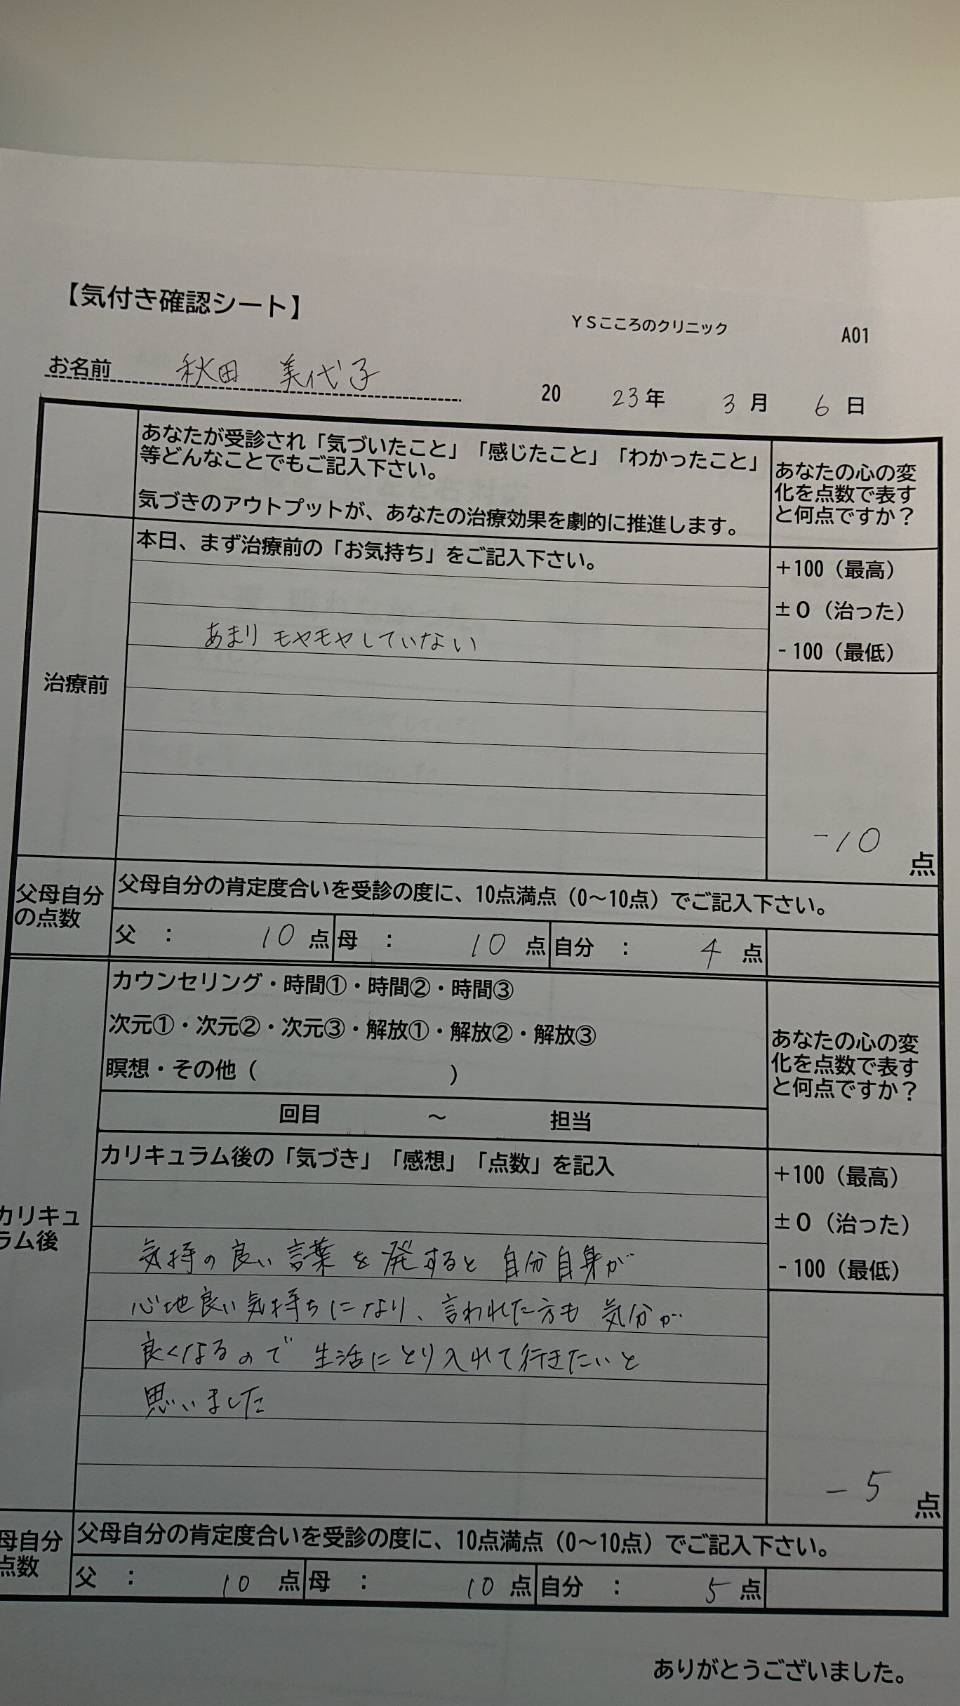 【気付き確認シート】
YSこころのクリニック
A01
お名前 秋田 美代子
20 23年 3月 6日
あなたが受診され「気づいたこと」「感じたこと」「わかったこと」
等どんなことでもご記入下さい。
気づきのアウトプットが、あなたの治療効果を劇的に推進します。
あなたの心の変
化を点数で表す
と何点ですか？
治療前
本日、まず治療前の「お気持ち」をご記入下さい。
+100（最高）
±0（治った）
-100（最低）
あまりモヤモヤしていない
-10 点
父母自分
の点数
父母自分の肯定度合いを受診の度に、10点満点（0～10点）でご記入下さい。
父 ： 10 点 母 ： 10 点 自分 ： 4 点
カウンセリング・時間①・時間②・時間③
次元①・次元②・次元③・解放①・解放②・解放③
瞑想・その他（ ）
回目 ～ 担当
あなたの心の変
化を点数で表す
と何点ですか？
カリキュ
ラム後
カリキュラム後の「気づき」「感想」「点数」を記入
+100（最高）
±0（治った）
-100（最低）
気持の良い言葉を発すると自分自身が
心地良い気持ちになり、言われた方も気分が
良くなるので生活にとり入れて行きたいと
思いました
-5 点
母自分
点数
父母自分の肯定度合いを受診の度に、10点満点（0～10点）でご記入下さい。
父 ： 10 点 母 ： 10 点 自分 ： 5 点
ありがとうございました。